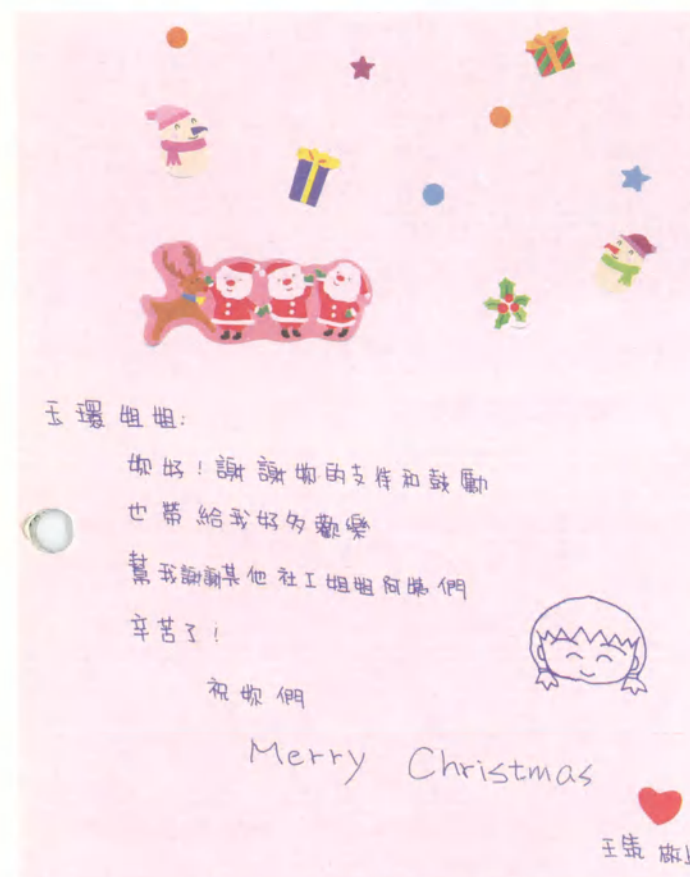 玉環姐姐:
妳好！謝謝妳的支持和鼓勵
也帶給我好多歡樂
幫我謝謝其他社工姐姐阿姨們
辛苦了！
祝妳們
Merry Christmas
王 敬上